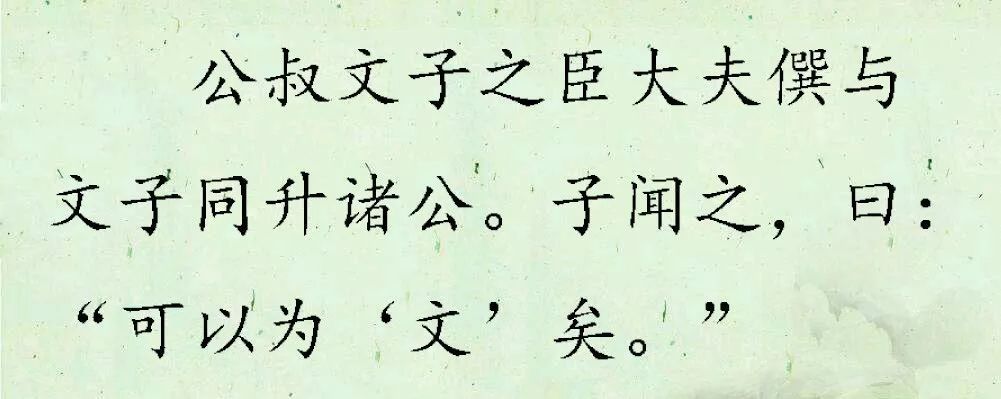 公叔文子之臣大夫僎与
文子同升诸公。子闻之，曰：
“可以为‘文’矣。”